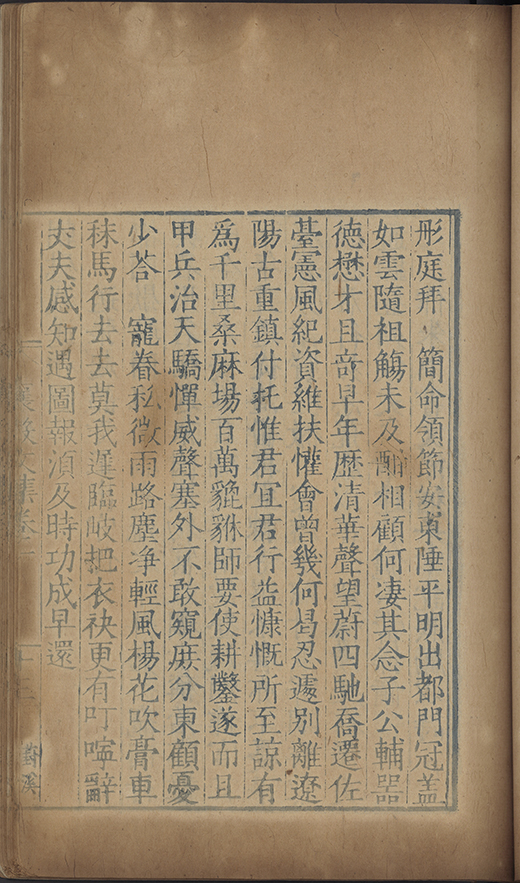 彤庭拜 簡命領節安東陲平明出都門冠盖
如雲隨祖觴未及酧相顧何凄其念子公輔器
德懋才且竒早年歴清華聲望蔚四馳喬遷佐
臺憲風紀資維扶懽會曾幾何曷忍遽别離遼
陽古重鎮付托惟君宜君行益慷慨所至諒有
爲千里桑麻場百萬貔貅師要使耕鑿遂而且
甲兵治天驕憚威聲塞外不敢窺庶分東顧憂
少荅 寵眷私微雨路塵净輕風楊花吹膏車
秣馬行去去莫我遲臨岐把衣袂更有叮嚀辭
丈夫感知遇圖報湏及時功成早還
襄毅文集卷